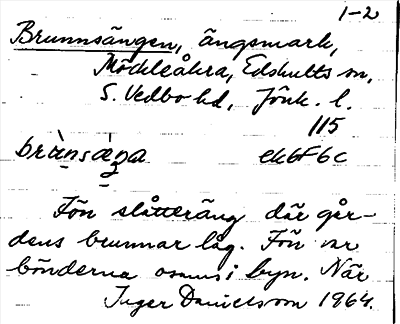 1-2
Brunnsängen, ängsmark,
Möckleåkra, Edshults sn,
S. Vedbo hd, Jönk. l.
115
ek6F6c
Förr slåtteräng där går-
dens brunnar låg. Förr var
bönderna osams i byn. När
Inger Danielsson 1964.